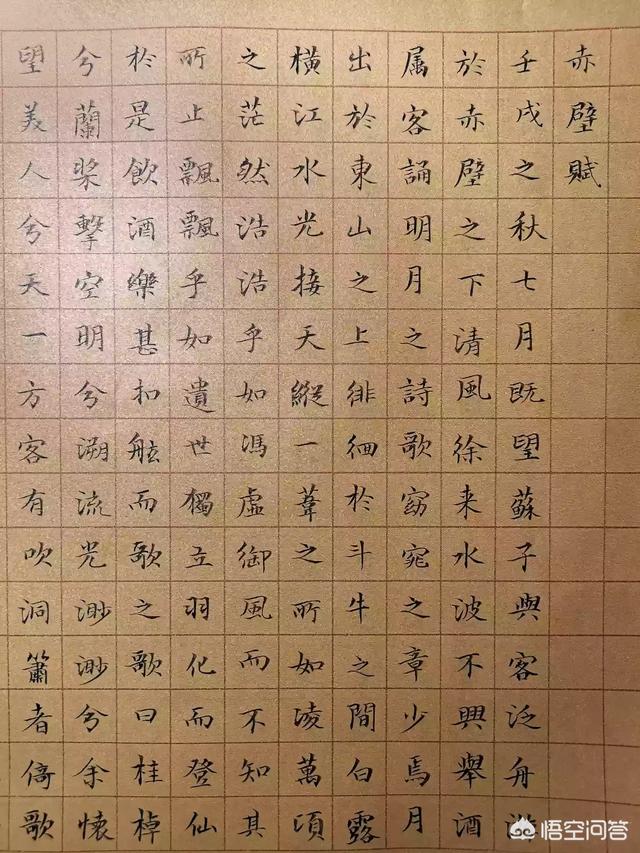 赤壁賦
壬戌之秋七月既望蘇子與客泛舟
於赤壁之下清風徐来水波不興舉酒
属客誦明月之詩歌窈窕之章少焉月
出於東山之上徘徊於斗牛之間白露
橫江水光接天縱一葦之所如凌萬頃
之茫然浩浩乎如馮虛御風而不知其
所止飄飄乎如遺世獨立羽化而登仙
於是飲酒樂甚扣舷而歌之歌曰桂棹
兮蘭槳擊空明兮溯流光渺渺兮余懷
望美人兮天一方客有吹洞簫者倚歌
悟空问答